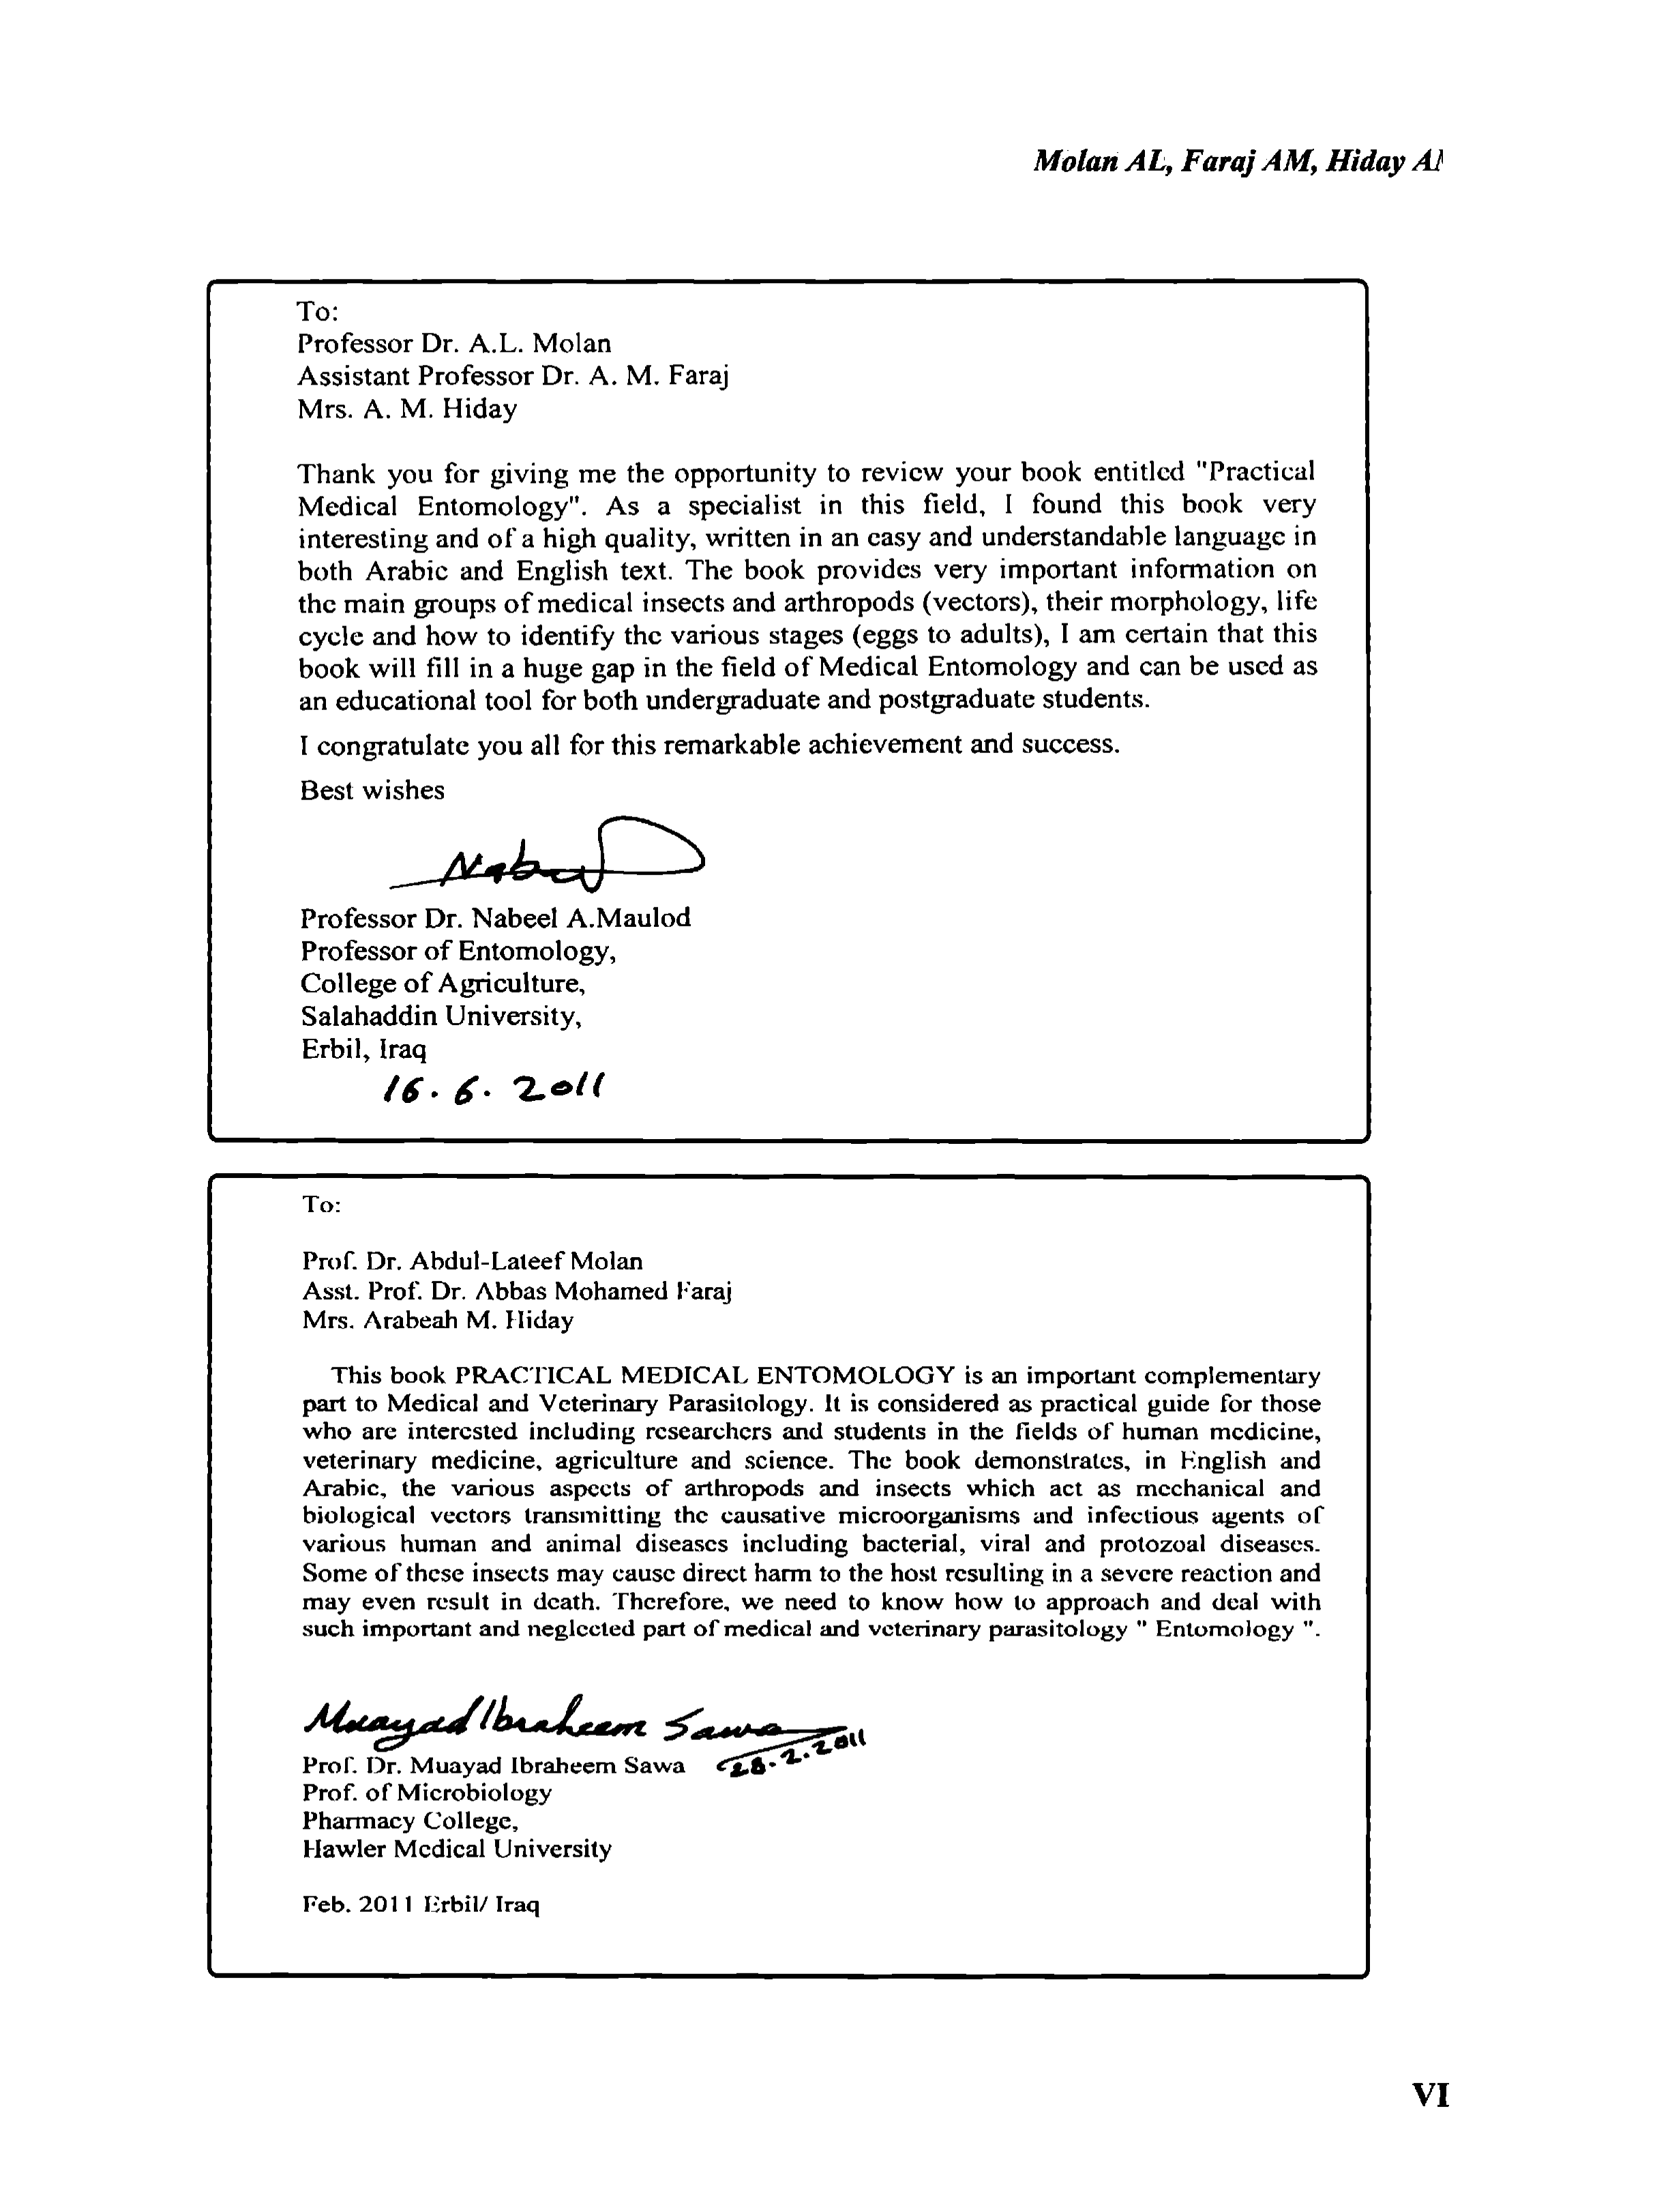 Molan AL, Faraj AM, Hiday
To:
Professor Dr. A.L. Molan
Assistant Professor Dr. A. M. Faraj
Mrs. A. M. Hiday
Thank you for giving me the opportunity to review your book entitled "Practical
Medical Entomology". As a specialist in this field, I found this book very
interesting and of a high quality, written in an easy and understandable language in
both Arabic and English text. The book provides very important information on
the main groups of medical insects and arthropods (vectors), their morphology, life
cycle and how to identify the various stages (eggs to adults), I am certain that this
book will fill in a huge gap in the field of Medical Entomology and can be used as
an educational tool for both undergraduate and postgraduate students.
I congratulate you all for this remarkable achievement and success.
Best wishes
Professor Dr. Nabeel A.Maulod
Professor of Entomology,
College of Agriculture,
Salahaddin University,
Erbil, Iraq
16.6.2011
To:
Prof. Dr. Abdul-Lateef Molan
Asst. Prof. Dr. Abbas Mohamed Faraj
Mrs. Arabeah M. Hiday
This book PRACTICAL MEDICAL ENTOMOLOGY is an important complementary
part to Medical and Veterinary Parasitology. It is considered as practical guide for those
who are interested including researchers and students in the fields of human medicine,
veterinary medicine, agriculture and science. The book demonstrates, in English and
Arabic, the various aspects of arthropods and insects which act as mechanical and
biological vectors transmitting the causative microorganisms and infectious agents of
various human and animal diseases including bacterial, viral and protozoal diseases.
Some of these insects may cause direct harm to the host resulting in a severe reaction and
may even result in death. Therefore, we need to know how to approach and deal with
such important and neglected part of medical and veterinary parasitology " Entomology ".
Muayad Ibraheem Sawa
28.2.2011
Prof. Dr. Muayad Ibraheem Sawa
Prof. of Microbiology
Pharmacy College,
Hawler Medical University
Feb. 2011 Erbil/ Iraq
VI